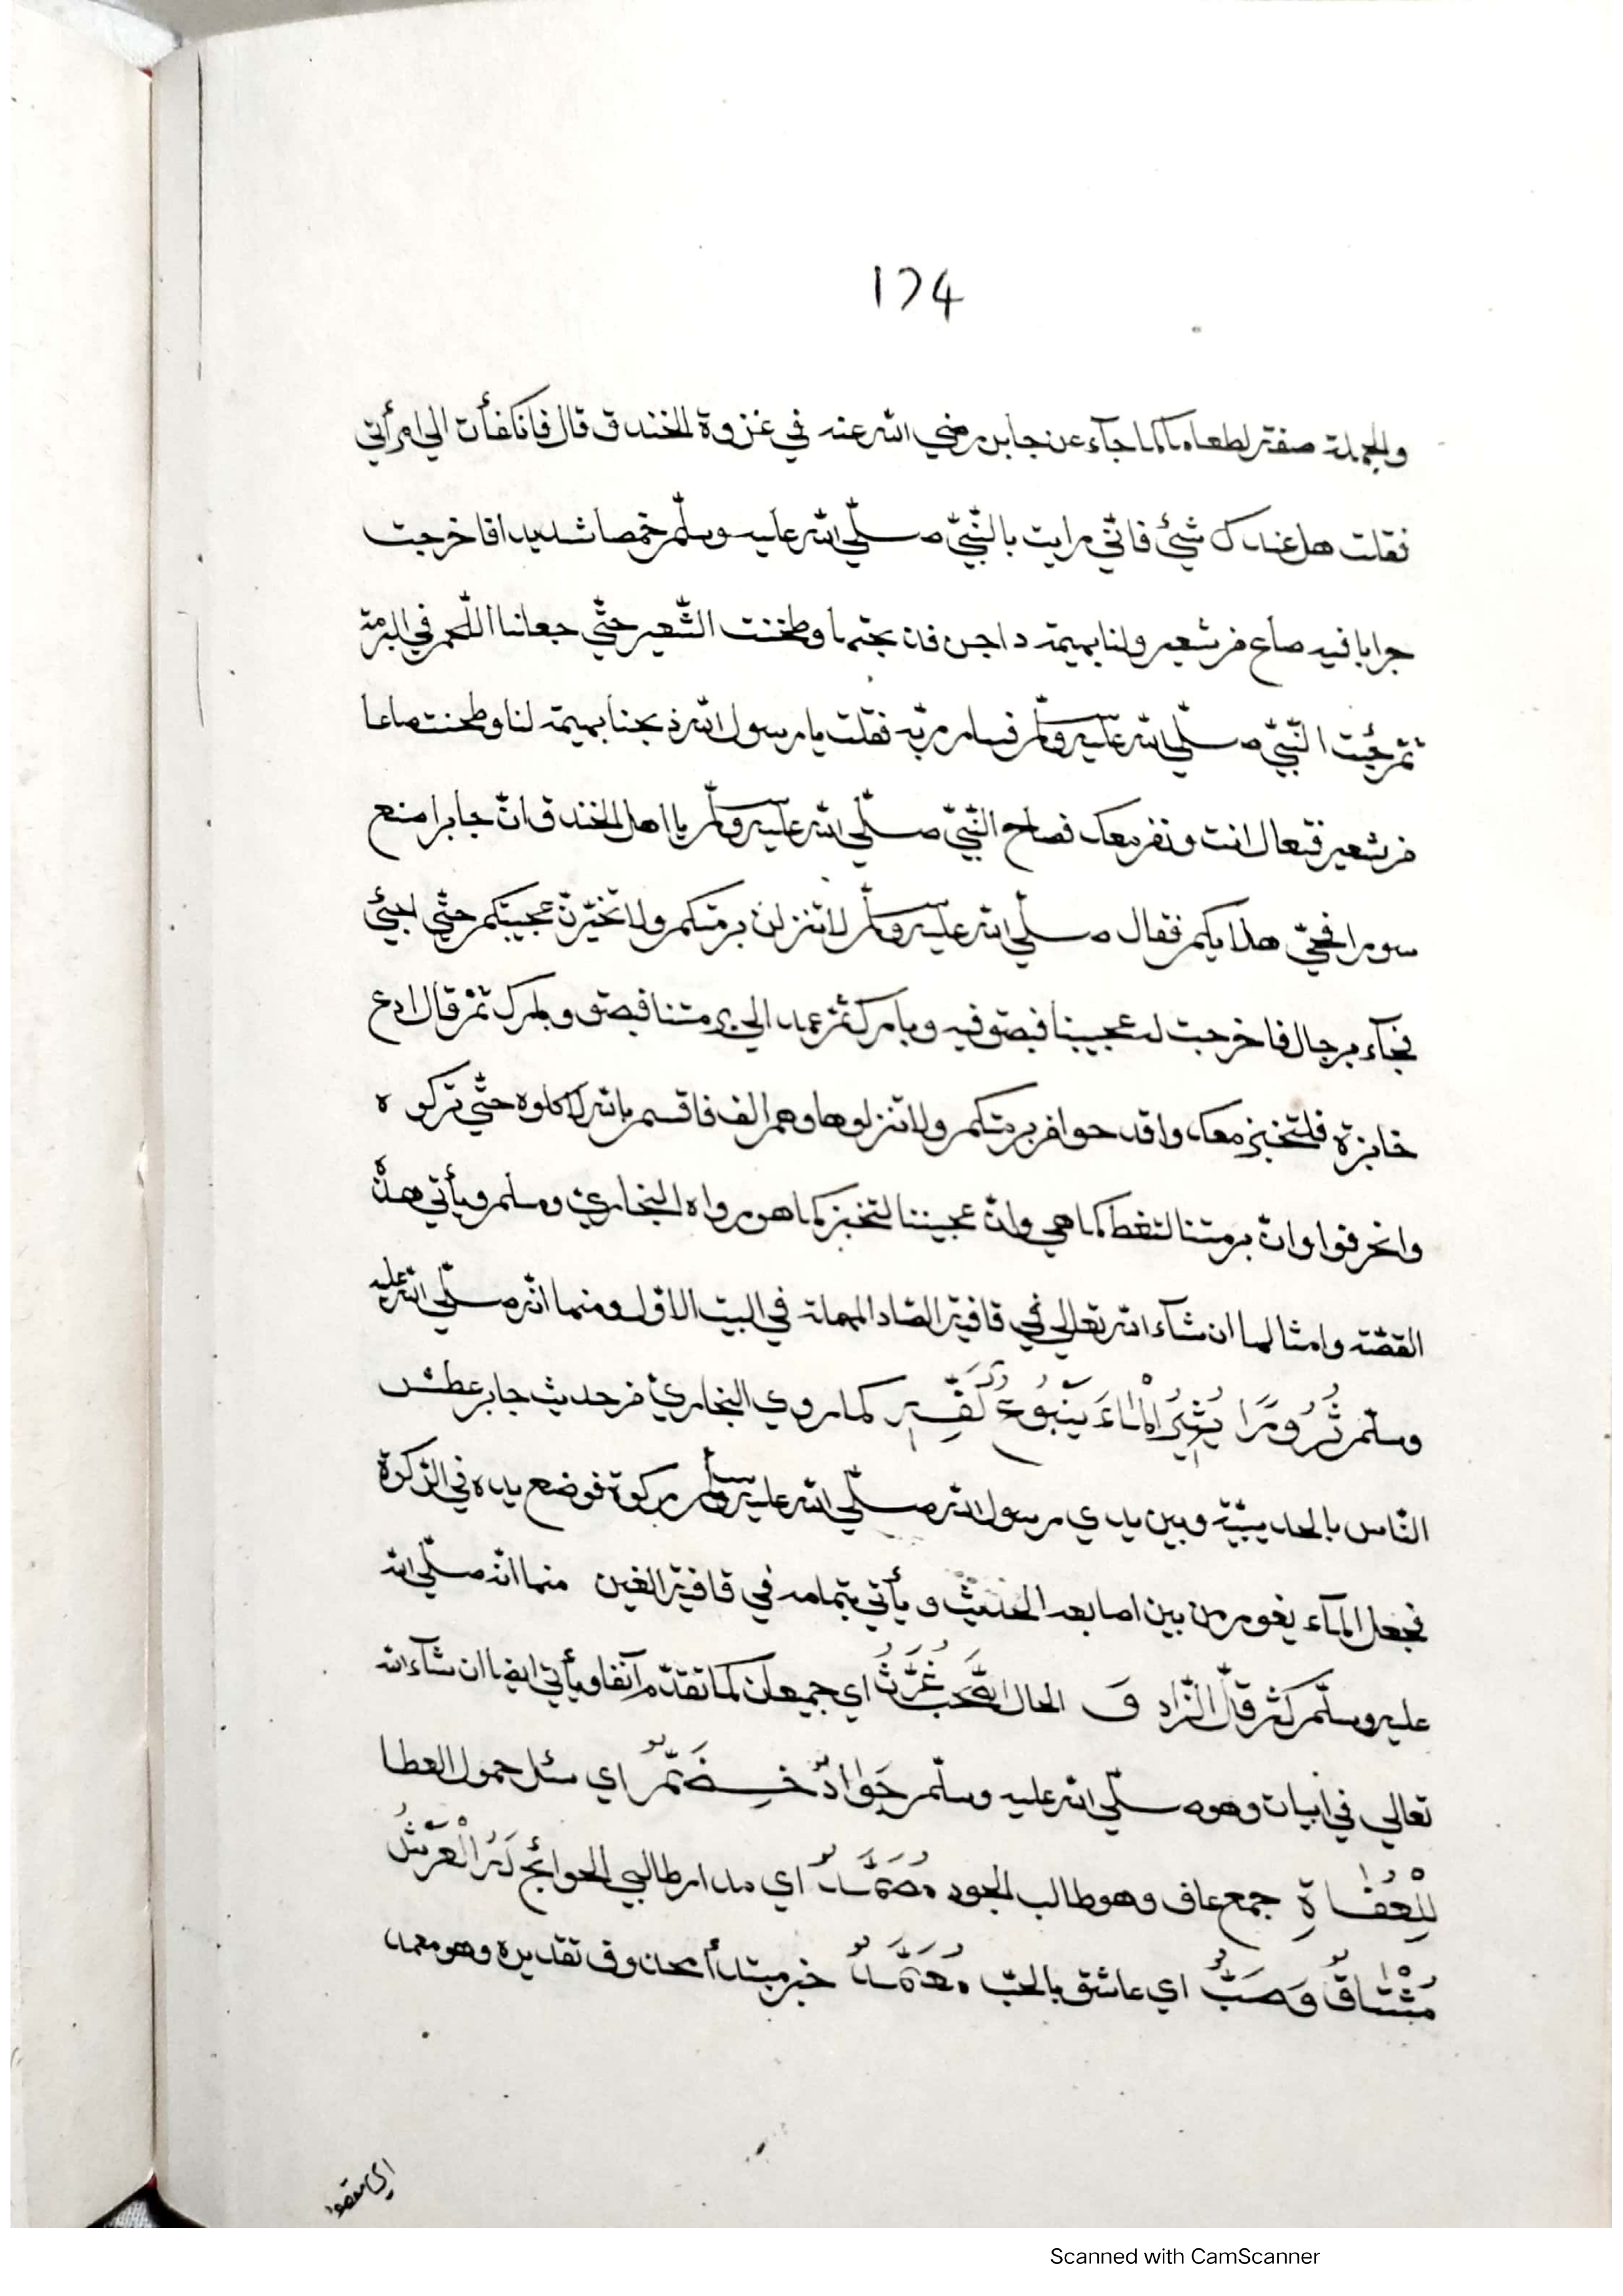 174
والجملة صفة لطعاما كما جآء عن جابر رضي الله عنه في غزوة الخندق قال فانكفأت الي امرأتي
فقلت هل عندك شيئ فانّي رايت بالنّبيّ صلّي الله عليه وسلّم خمصا شديدا فاخرجت
جرابا فيه صاع من شعير ولنا بهيمة داجن فذبحتها وطحنت الشّعير حتّي جعلنا اللّحم في البرمة
ثمّ جئت النّبيّ صلّي الله عليه وسلّم فساررته فقلت يا رسول الله ذبحنا بهيمة لنا وطحنت صاعا
من شعير فتعال انت ونفر معك فصاح النّبيّ صلّي الله عليه وسلّم يا اهل الخندق انّ جابرا صنع
سورا فحيّ هلا بكم فقال صلّي الله عليه وسلّم لا تنزلن برمتكم ولا تخبزنّ عجينكم حتّي اجيئ
فجآء برجال فاخرجت له عجيننا فبصق فيه وبارك ثمّ عمد الي برمتنا فبصق وبارك ثمّ قال ادع
خابزة فلتخبز معك واقدحوا من برمتكم ولا تنزلوها وهم الف فاقسم بالله لاكلوه حتّي تركوه
وانحرفوا وانّ برمتنا لتغط كما هي وانّ عجيننا لتخبز كما هو رواه البخاريّ ومسلم ويأتي هذه
القصّة وامثالها ان شآء الله تعالي في قافية الصّاد المهملة في البيت الاوّل ومنها انّه صلّي الله عليه
وسلّم ثَرُورًا يُثِيرُ الْمَاءَ يَنْبُوعُ كَفِّهِ كما روي البخاريّ من حديث جابر عطش
النّاس بالحديبيّة وبين يدي رسول الله صلّي الله عليه وسلّم ركوة فوضع يده في الرّكوة
فجعل المآء يفور من بين اصابعه الحديث ويأتي بتمامه في قافية الغين منها انّه صلّي الله
عليه وسلّم كثر قلّ الزّاد و الحال الصَّحْبُ غُرَّثُ اي جميعان كما تقدّم آنفا ويأتي ايضا ان شآء الله
تعالي في ابيات وهو صلّي الله عليه وسلّم جَوَادٌ خِضَمٌّ اي سئل حمول العطا
لِلْعُفَاةِ جمع عاف وهو طالب الجود مُصَمَّدٌ اي مدار طالبي الحوائج لَهُ الْعَرْشُ
مُشْتَاقٌ وَصَبٌّ اي عاشق بالحبّ مُعَمَّدٌ خبر مبتدأ محذوف تقديره وهو معمد
اي مقصو
Scanned with CamScanner